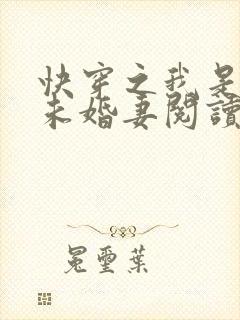 快穿之我是
未婚妻閱讀
冕璽葉